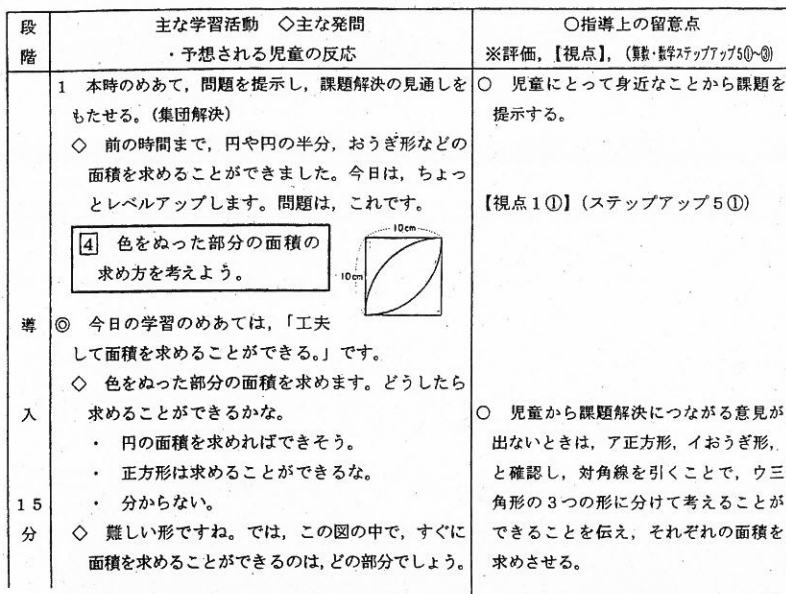 段階
主な学習活動 ◇主な発問
・予想される児童の反応
○指導上の留意点
※評価，【視点】，（算数・数学ステップアップ5①～③）
導入
15分
1 本時のめあて，問題を提示し，課題解決の見通しを
もたせる。(集団解決)
◇ 前の時間まで，円や円の半分，おうぎ形などの
面積を求めることができました。今日は，ちょっ
とレベルアップします。問題は，これです。
4 色をぬった部分の面積の
求め方を考えよう。
10cm
10cm
◎ 今日の学習のめあては，「工夫
して面積を求めることができる。」です。
◇ 色をぬった部分の面積を求めます。どうしたら
求めることができるかな。
・ 円の面積を求めればできそう。
・ 正方形は求めることができるな。
・ 分からない。
◇ 難しい形ですね。では，この図の中で，すぐに
面積を求めることができるのは，どの部分でしょう。
○ 児童にとって身近なことから課題を
提示する。
【視点1①】(ステップアップ5①)
○ 児童から課題解決につながる意見が
出ないときは，ア正方形，イおうぎ形，
と確認し，対角線を引くことで，ウ三
角形の3つの形に分けて考えることが
できることを伝え，それぞれの面積を
求めさせる。